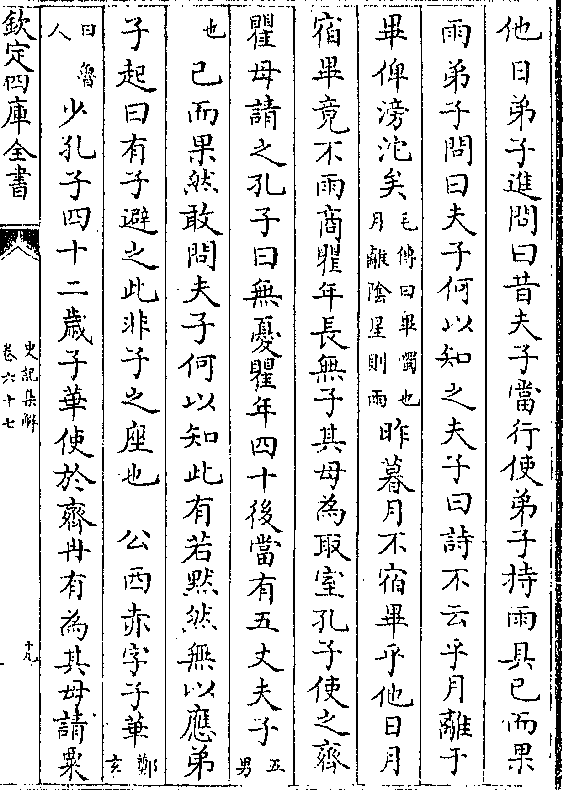 他日弟子進問曰昔夫子當行使弟子持雨具已而果
雨弟子問曰夫子何以知之夫子曰詩不云乎月離于
畢俾滂沱矣毛傳曰畢噣也月離陰星則雨昨暮月不宿畢乎他日月
宿畢竟不雨商瞿年長無子其母為取室孔子使之齊
瞿母請之孔子曰無憂瞿年四十後當有五丈夫子五男
也已而果然敢問夫子何以知此有若黙然無以應弟
子起曰有子避之此非子之座也 公西赤字子華鄭玄
曰魯人少孔子四十二歲子華使於齊冉有為其母請粟
欽定四庫全書
史記集解
卷六十七